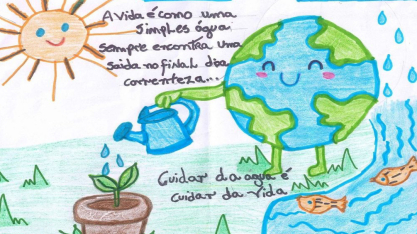 A vida é como uma
simples água
sempre encontra uma
saida no final da
correnteza...
Cuidar da agua é
cuidar da vida